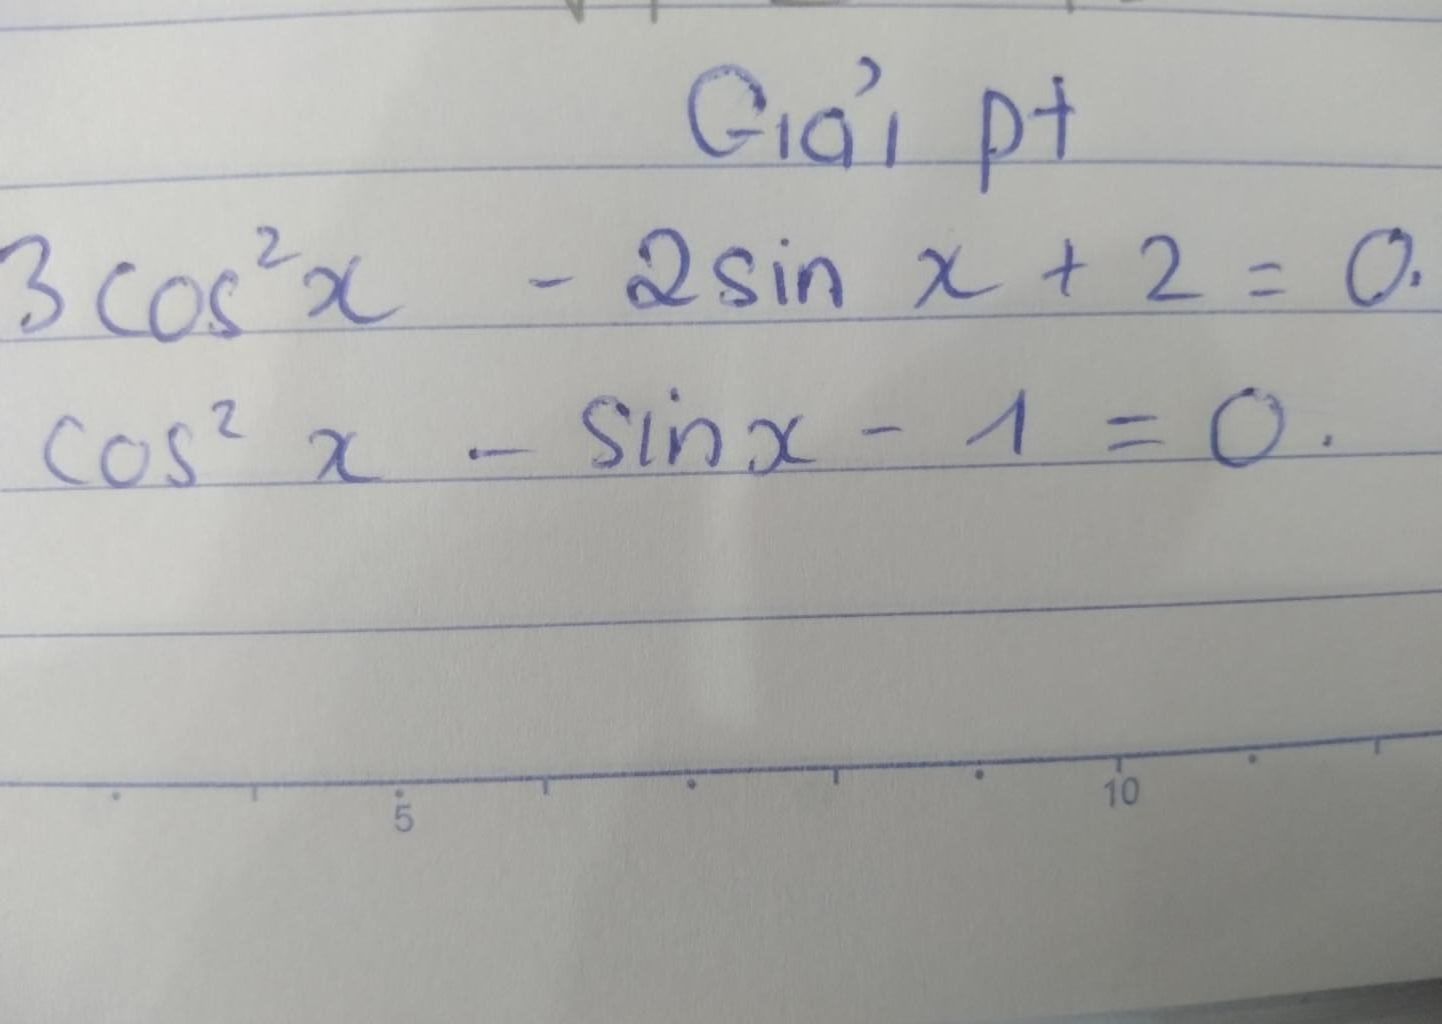 Giải pt
3 cos²x - 2 sin x + 2 = 0.
cos² x - sin x - 1 = 0.
5 10